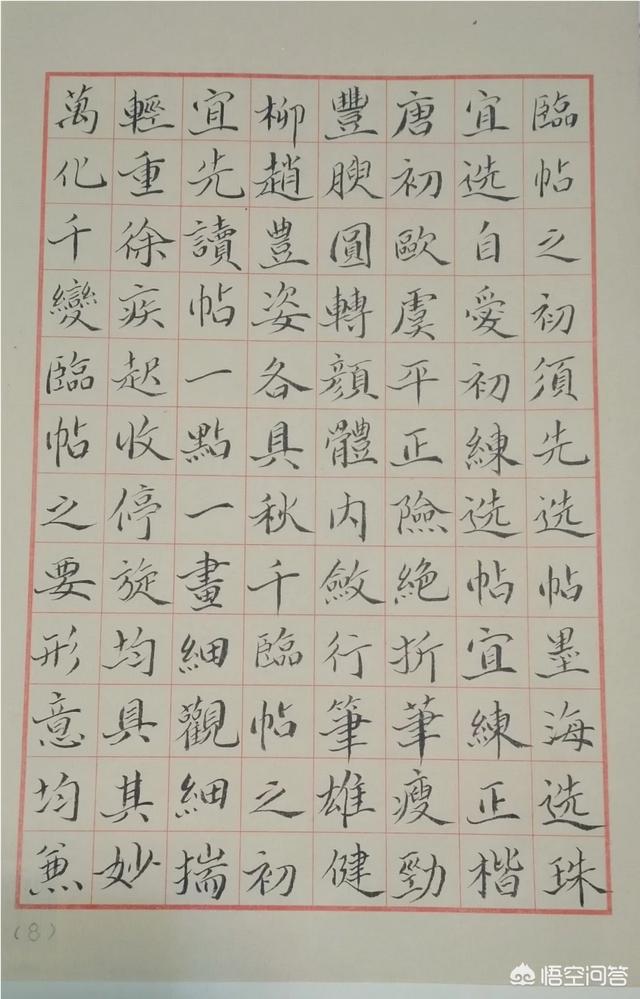 臨帖之初須先选帖墨海选珠
宜选自愛初練选帖宜練正楷
唐初歐虞平正險絶折筆瘦勁
豐腴圓轉顔體内斂行筆雄健
柳趙豊姿各具秋千臨帖之初
宜先讀帖一點一畫細觀細揣
輕重徐疾起收停旋均具其妙
萬化千變臨帖之要形意均兼
(8)
悟空问答